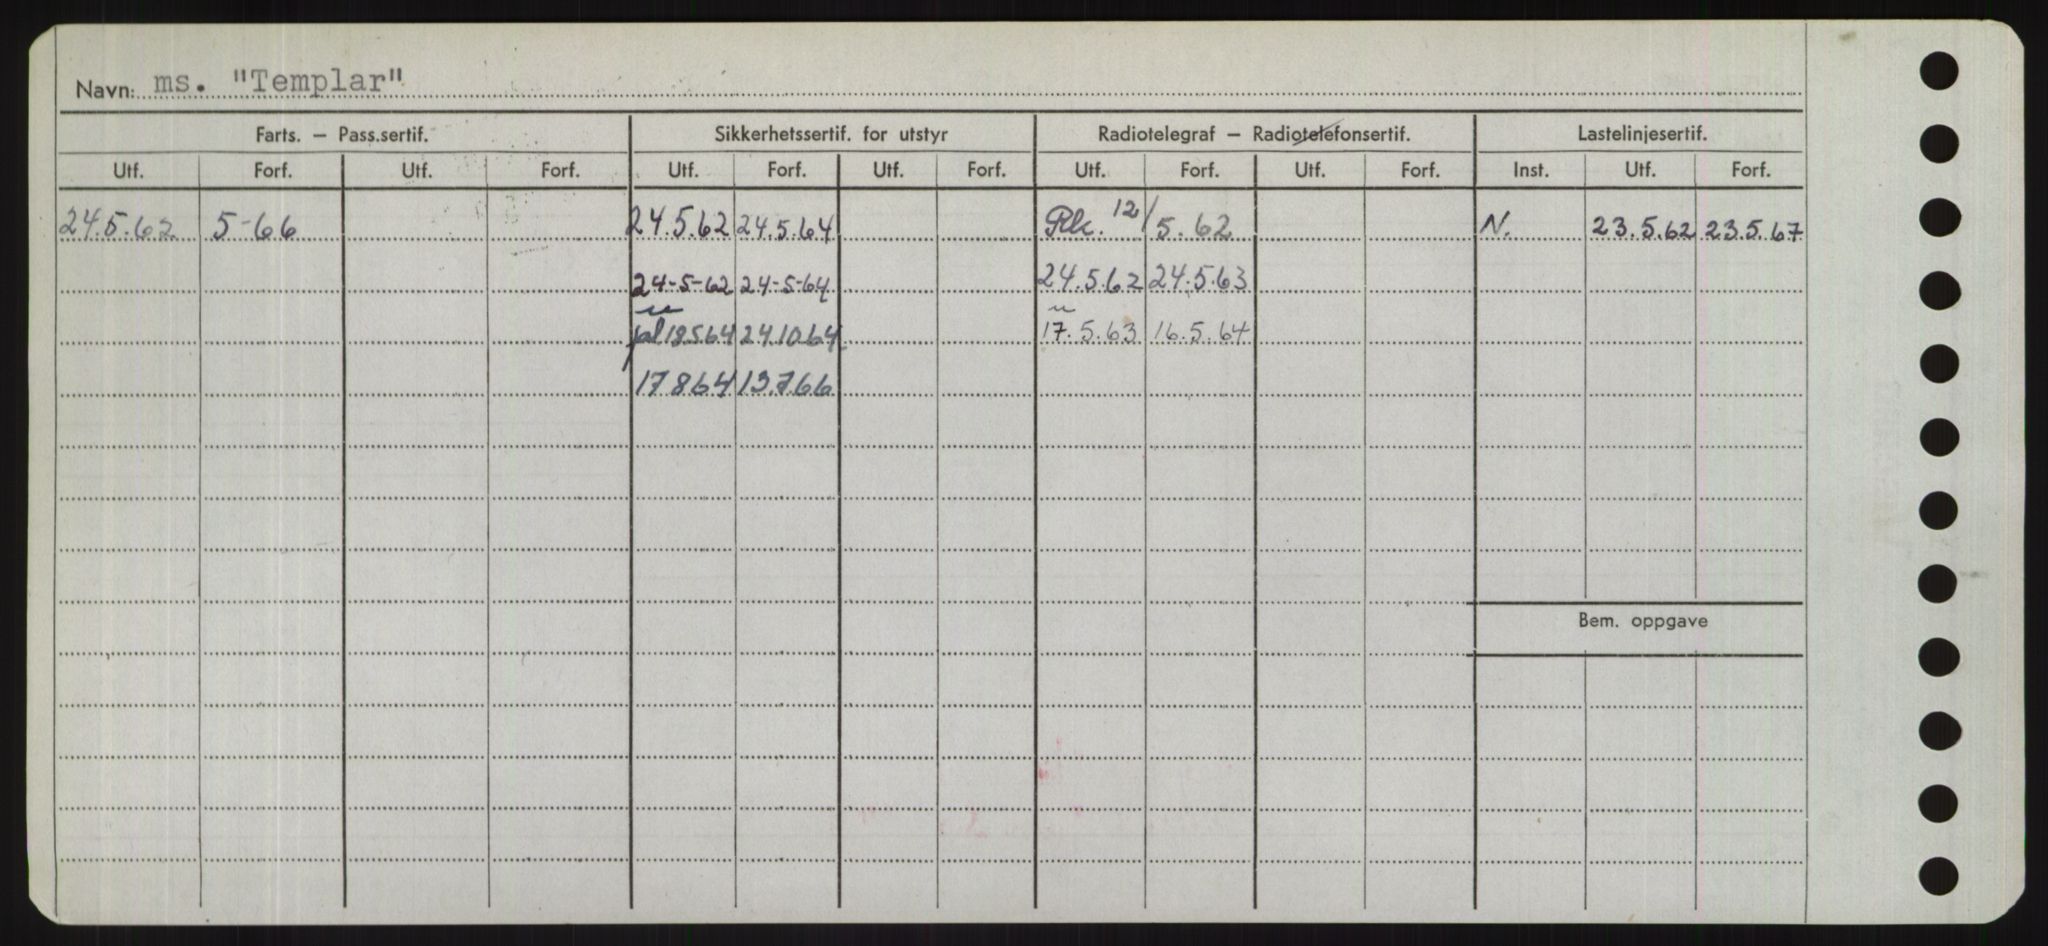 Navn: ms. "Templar"
Farts. – Pass.sertif. Sikkerhetssertif. for utstyr Radiotelegraf – Radiotelefonsertif. Lastelinjesertif.
Utf. Forf. Utf. Forf. Utf. Forf. Utf. Forf. Utf. Forf. Utf. Forf. Inst. Utf. Forf.
24.5.62 5-66 24.5.62 24.5.64 12/5.62 N. 23.5.62 23.5.67
24-5-62 24-5-64 24.5.62 24.5.63
18.5.64 24.10.64 17.5.63 16.5.64
17.8.64 13.7.66
Bem. oppgave